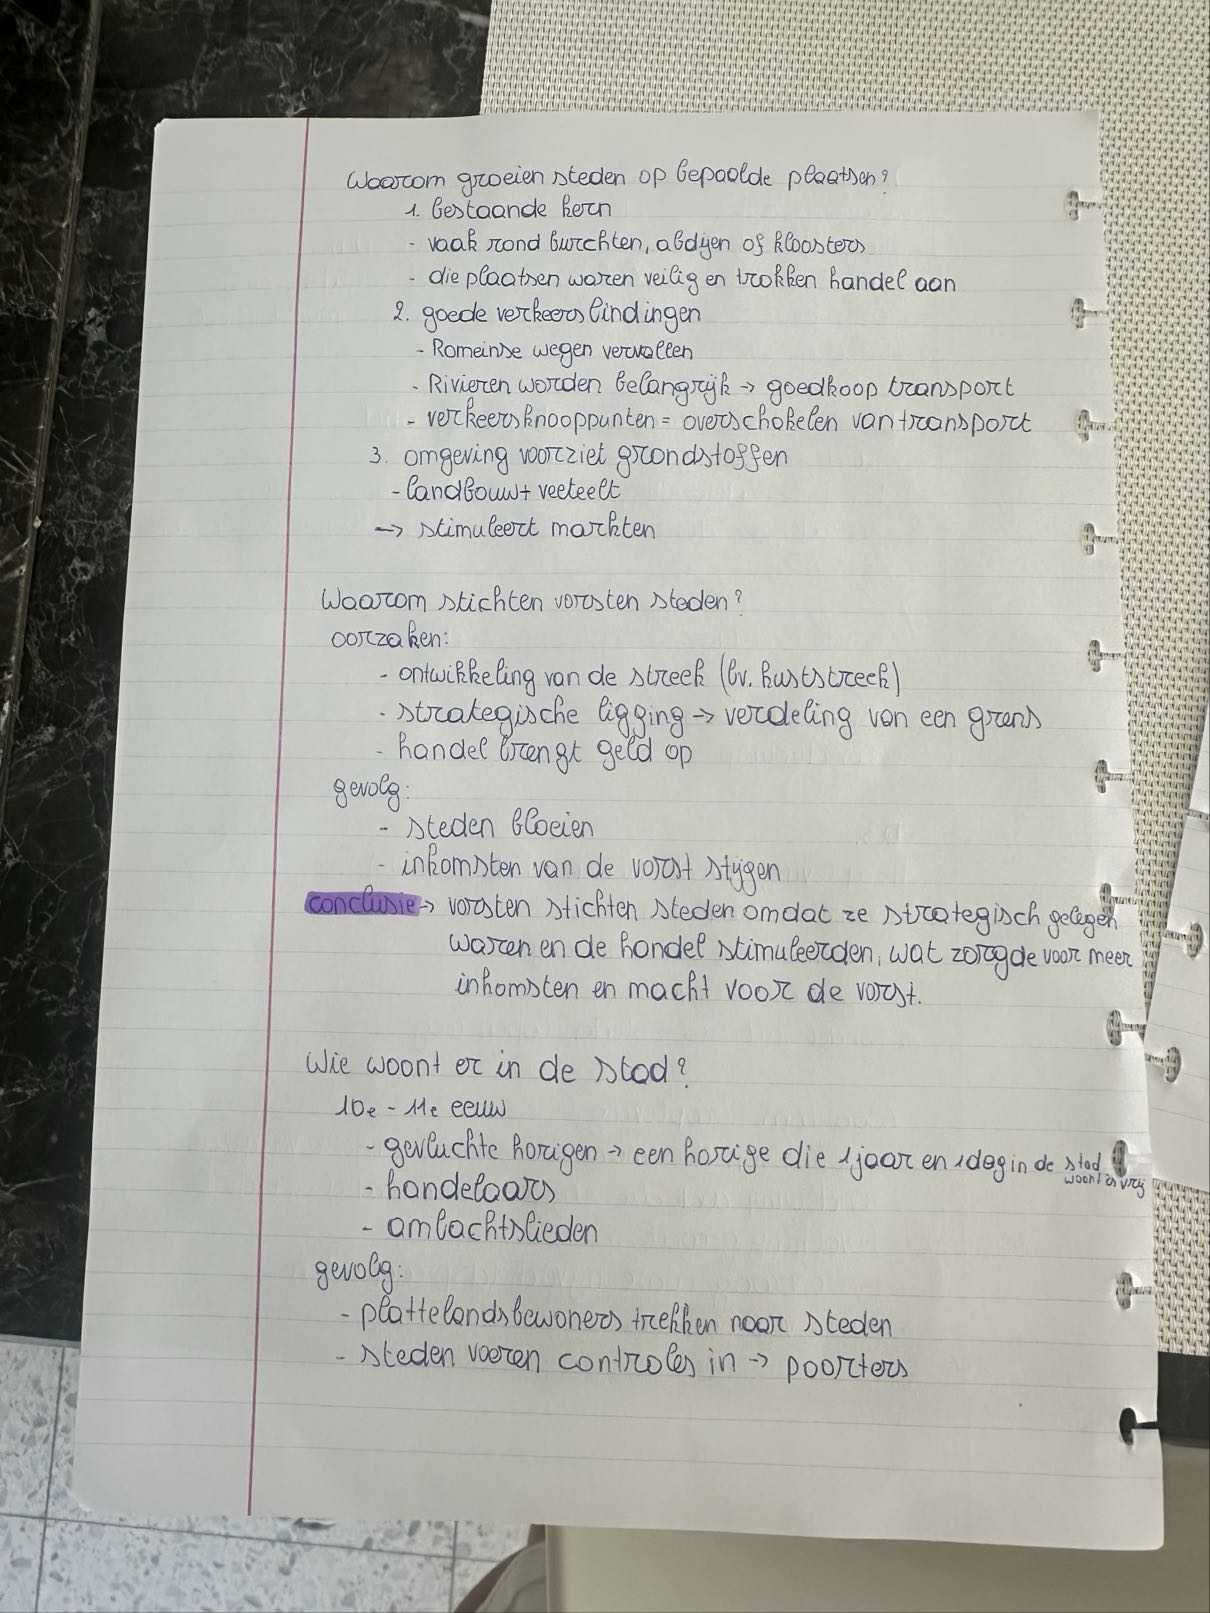 Waarom groeien steden op bepaalde plaatsen?
1. bestaande kern
- vaak rond burchten, abdijen of kloosters
- die plaatsen waren veilig en trokken handel aan
2. goede verkeersbindingen
- Romeinse wegen vervallen
- Rivieren worden belangrijk → goedkoop transport
- verkeersknooppunten = overschakelen van transport
3. omgeving voorziet grondstoffen
- landbouw + veeteelt
→ stimuleert markten
Waarom stichten vorsten steden?
oorzaken:
- ontwikkeling van de streek (bv. kuststreek)
- strategische ligging → verdeling van een grens
- handel brengt geld op
gevolg:
- steden bloeien
- inkomsten van de vorst stijgen
conclusie → vorsten stichten steden omdat ze strategisch gelegen
waren en de handel stimuleerden, wat zorgde voor meer
inkomsten en macht voor de vorst.
Wie woont er in de stad?
10e - 11e eeuw
- gevluchte horigen → een horige die 1 jaar en 1 dag in de stad
woont is vrij
- handelaars
- ambachtslieden
gevolg:
- plattelandsbewoners trekken naar steden
- steden voeren controles in → poorters